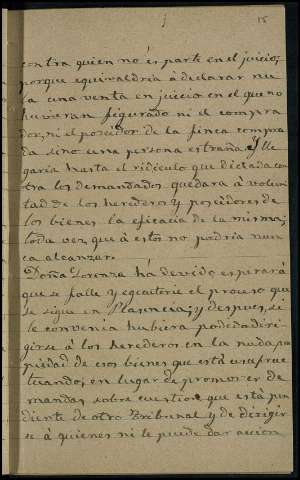 15
contra quien no és parte en el juicio,
porque equivaldria á declarar nu
la una venta en juicio en el que no
huvieran figurado ni el compra
dor, ni el poseidor de la finca compra
da sino una persona estraña. Y lle
garia hasta el ridiculo que dictada con
tra los demandados quedara á volun
tad de los herederos y poseidores de
los bienes la eficacia de la misma;
toda vez, que á estos no podria nun
ca alcanzar.
Doña Lorenza há devido esperar á
que se falle y egecutorie el proceso que
se sigue en Plasencia; y despues, si
le convenia hubiera podido diri
girse á los herederos en la nuda pro
piedad de esos bienes que está usufruc
tuando, en lugar de promover de
mandas sobre cuestion que está pen
diente de otro Tribunal y de dirigir
se á quienes ni le puede dar accion